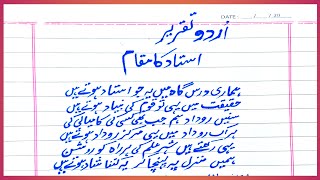 DATE: / / 20
اُردو تقریر
استاد کا مقام
ہماری درس گاہ میں یہ جو استاد ہوتے ہیں
حقیقت میں یہی تو قوم کی بنیاد ہوتے ہیں
سنیں روداد ہم جب بھی کسی کی کامیابی کی
ہر اِک روداد میں یہی مرکزِ روداد ہوتے ہیں
یہی رکھتے ہیں شہرِ علم کی ہر راہ کو روشن
ہمیں منزل پہ پہنچا کر یہ کتنا شاد ہوتے ہیں